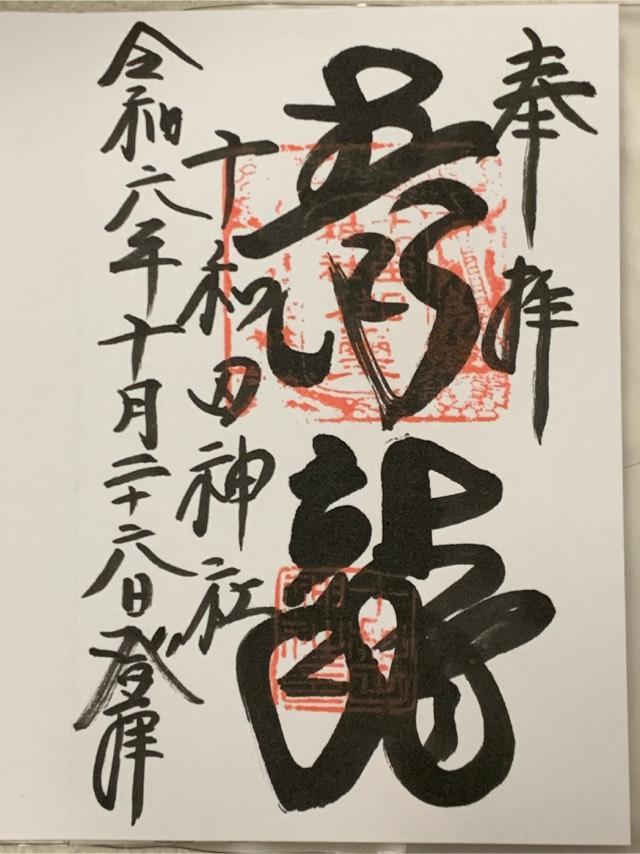 奉拝
青龍
十和田神社
令和六年十月二十六日登拝